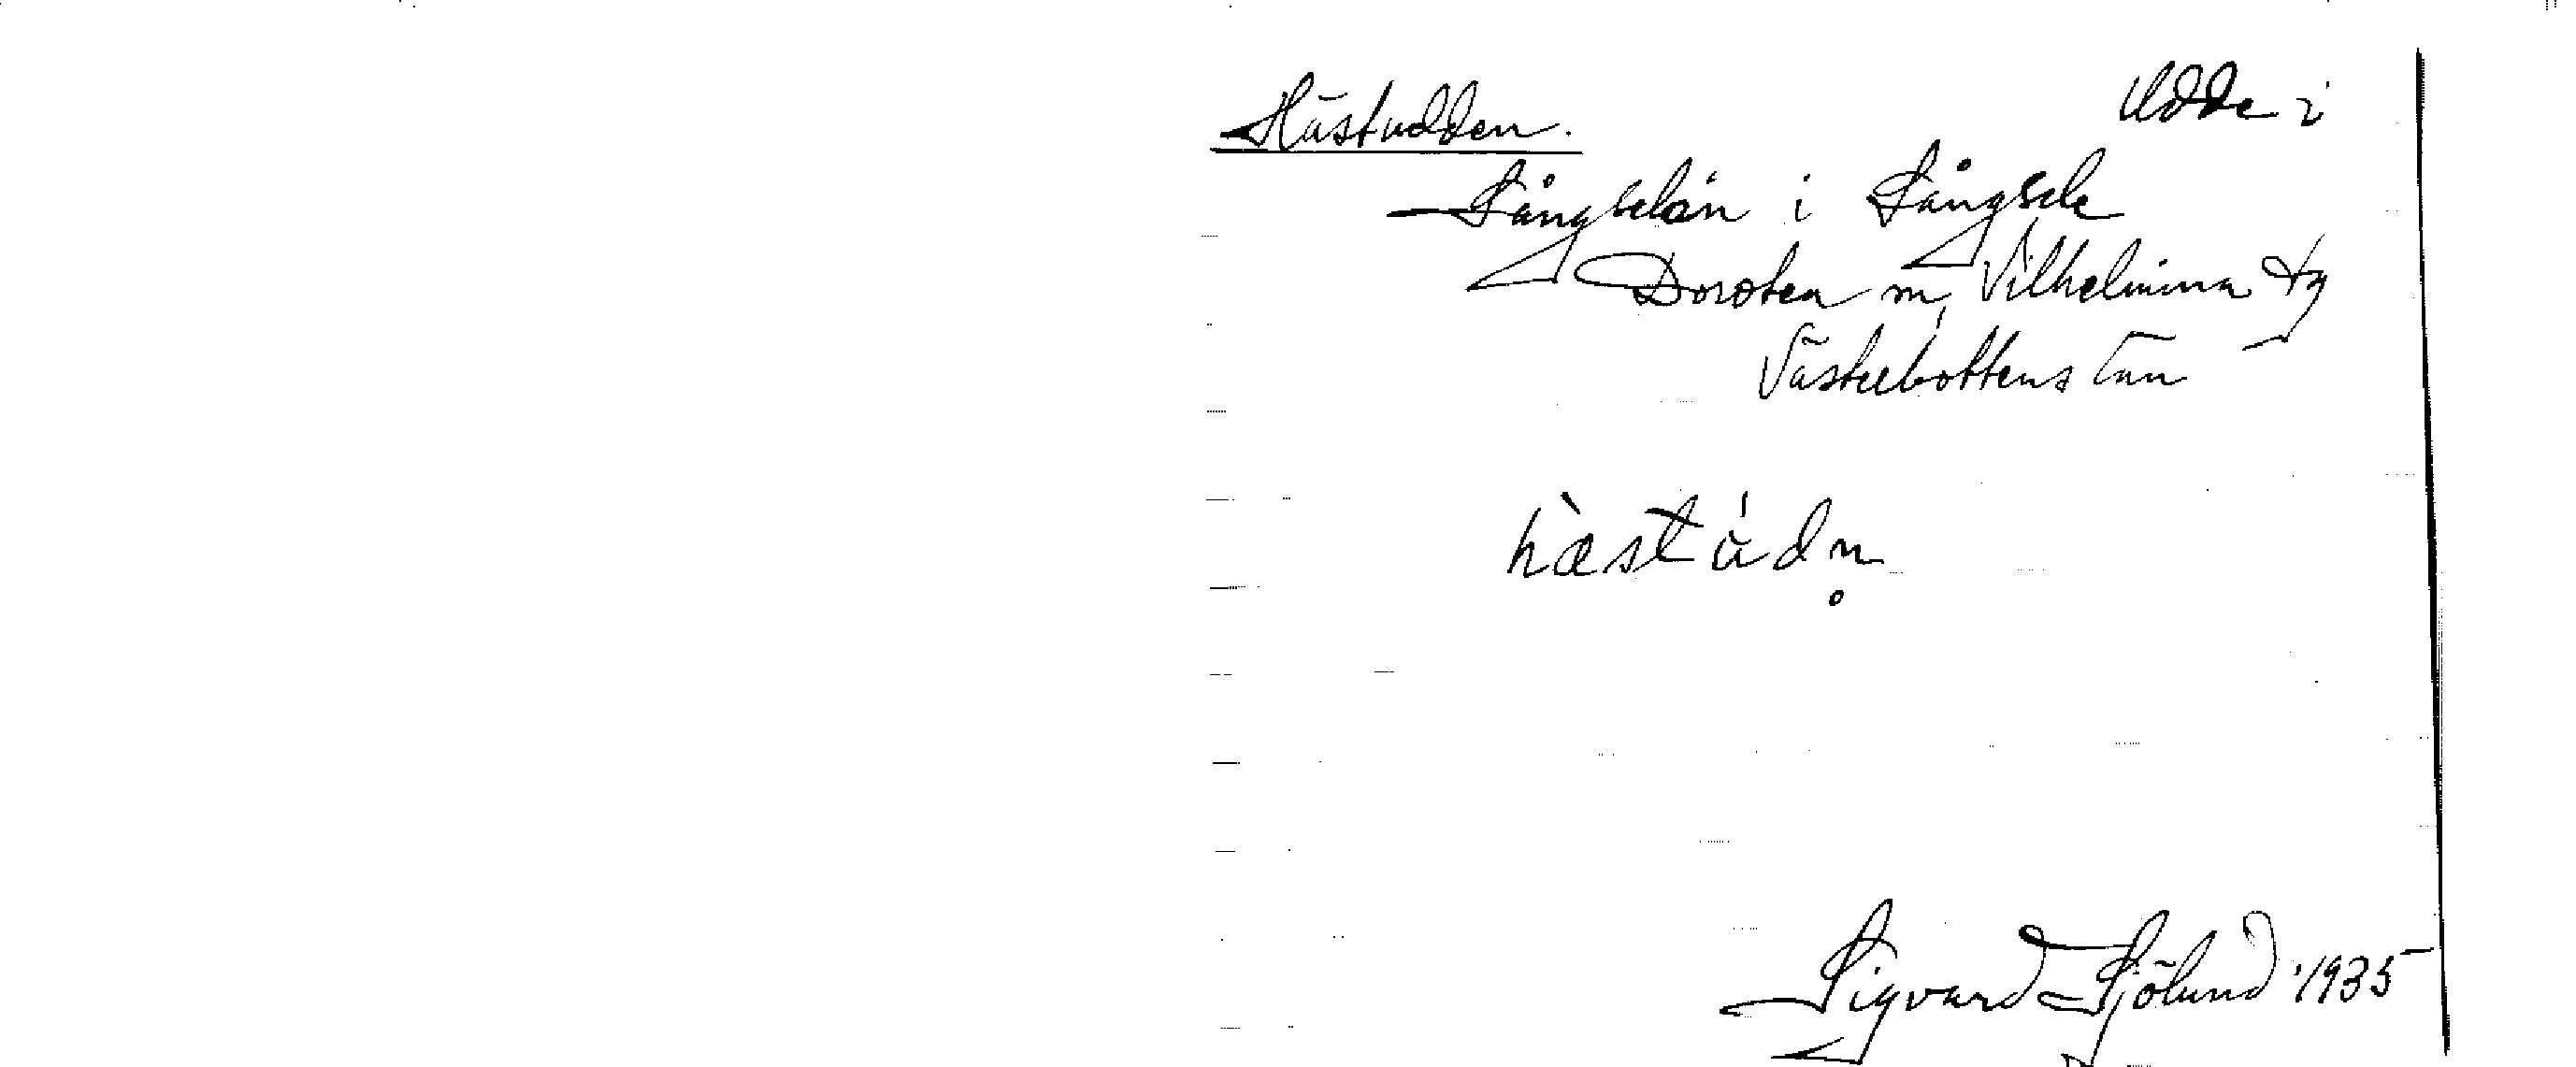 Hästudden. Udde i
Långselån i Långsele
Dorotea m, Vilhelmina tg
Västerbottens län
hæ̀stúdn̥
Sigvard Sjölund 1935